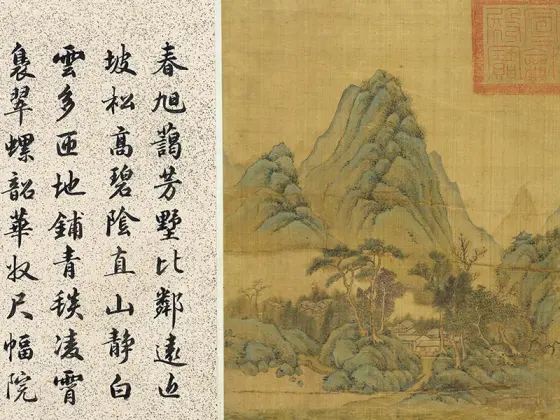 春旭藹芳墅比鄰遠近
坡松高碧陰直山靜白
雲多匝地鋪青毯凌霄
裊翠螺韶華收尺幅院